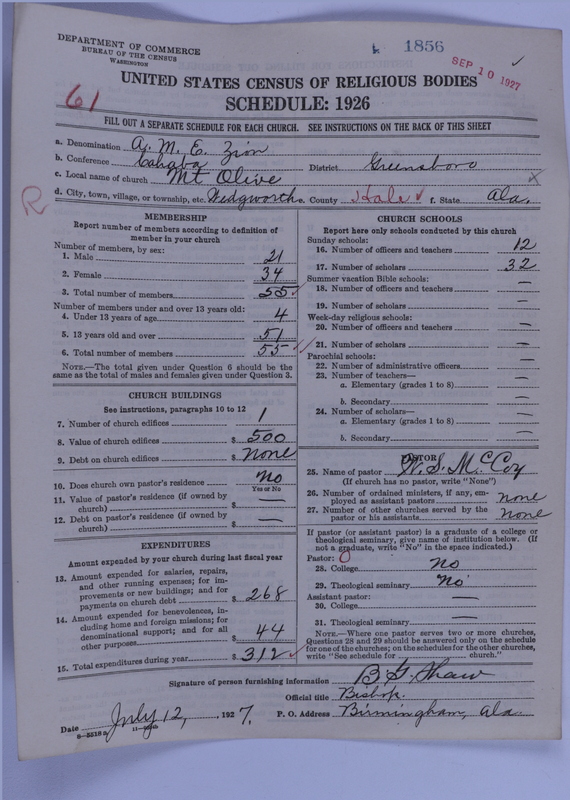 1856
SEP 10 1927
DEPARTMENT OF COMMERCE
BUREAU OF THE CENSUS
WASHINGTON
UNITED STATES CENSUS OF RELIGIOUS BODIES
61
SCHEDULE: 1926
FILL OUT A SEPARATE SCHEDULE FOR EACH CHURCH. SEE INSTRUCTIONS ON THE BACK OF THIS SHEET
a. Denomination A. M. E. Zion
b. Conference Cahaba District Greensboro
c. Local name of church Mt Olive
d. City, town, village, or township, etc. Wedgworth e. County Hale f. State Ala.
R
MEMBERSHIP
Report number of members according to definition of
member in your church
Number of members, by sex:
1. Male 21
2. Female 34
3. Total number of members 55
Number of members under and over 13 years old:
4. Under 13 years of age 4
5. 13 years old and over 51
6. Total number of members 55
NOTE.—The total given under Question 6 should be
same as the total of males and females given under Question 3.
CHURCH BUILDINGS
See instructions, paragraphs 10 to 12
7. Number of church edifices 1
8. Value of church edifices $ 500
9. Debt on church edifices $ None
10. Does church own pastor's residence No
Yes or No
11. Value of pastor's residence (if owned by
church) $ —
12. Debt on pastor's residence (if owned by
church) $ —
EXPENDITURES
Amount expended by your church during last fiscal year
13. Amount expended for salaries, repairs,
and other running expenses; for im-
provements or new buildings; and for
payments on church debt $ 268
14. Amount expended for benevolences, in-
cluding home and foreign missions; for
denominational support; and for all
other purposes $ 44
15. Total expenditures during year $ 312
CHURCH SCHOOLS
Report here only schools conducted by this church
Sunday schools:
16. Number of officers and teachers 12
17. Number of scholars 32
Summer vacation Bible schools:
18. Number of officers and teachers —
19. Number of scholars —
Week-day religious schools:
20. Number of officers and teachers —
21. Number of scholars —
Parochial schools:
22. Number of administrative officers —
23. Number of teachers—
a. Elementary (grades 1 to 8) —
b. Secondary —
24. Number of scholars—
a. Elementary (grades 1 to 8) —
b. Secondary —
PASTOR
25. Name of pastor W. S. McCoy
(If church has no pastor, write "None")
26. Number of ordained ministers, if any, em-
ployed as assistant pastors none
27. Number of other churches served by the
pastor or his assistants None
If pastor (or assistant pastor) is a graduate of a college or
theological seminary, give name of institution below. (If
not a graduate, write "No" in the space indicated.)
Pastor: 0
28. College No
29. Theological seminary No
Assistant pastor: —
30. College
31. Theological seminary —
NOTE.—Where one pastor serves two or more churches,
Questions 28 and 29 should be answered only on the schedule
for one of the churches; on the schedules for the other churches,
write "See schedule for church."
Signature of person furnishing information B. G. Shaw
Official title Bishop.
Date July 12, 1927, P. O. Address Birmingham, Ala.